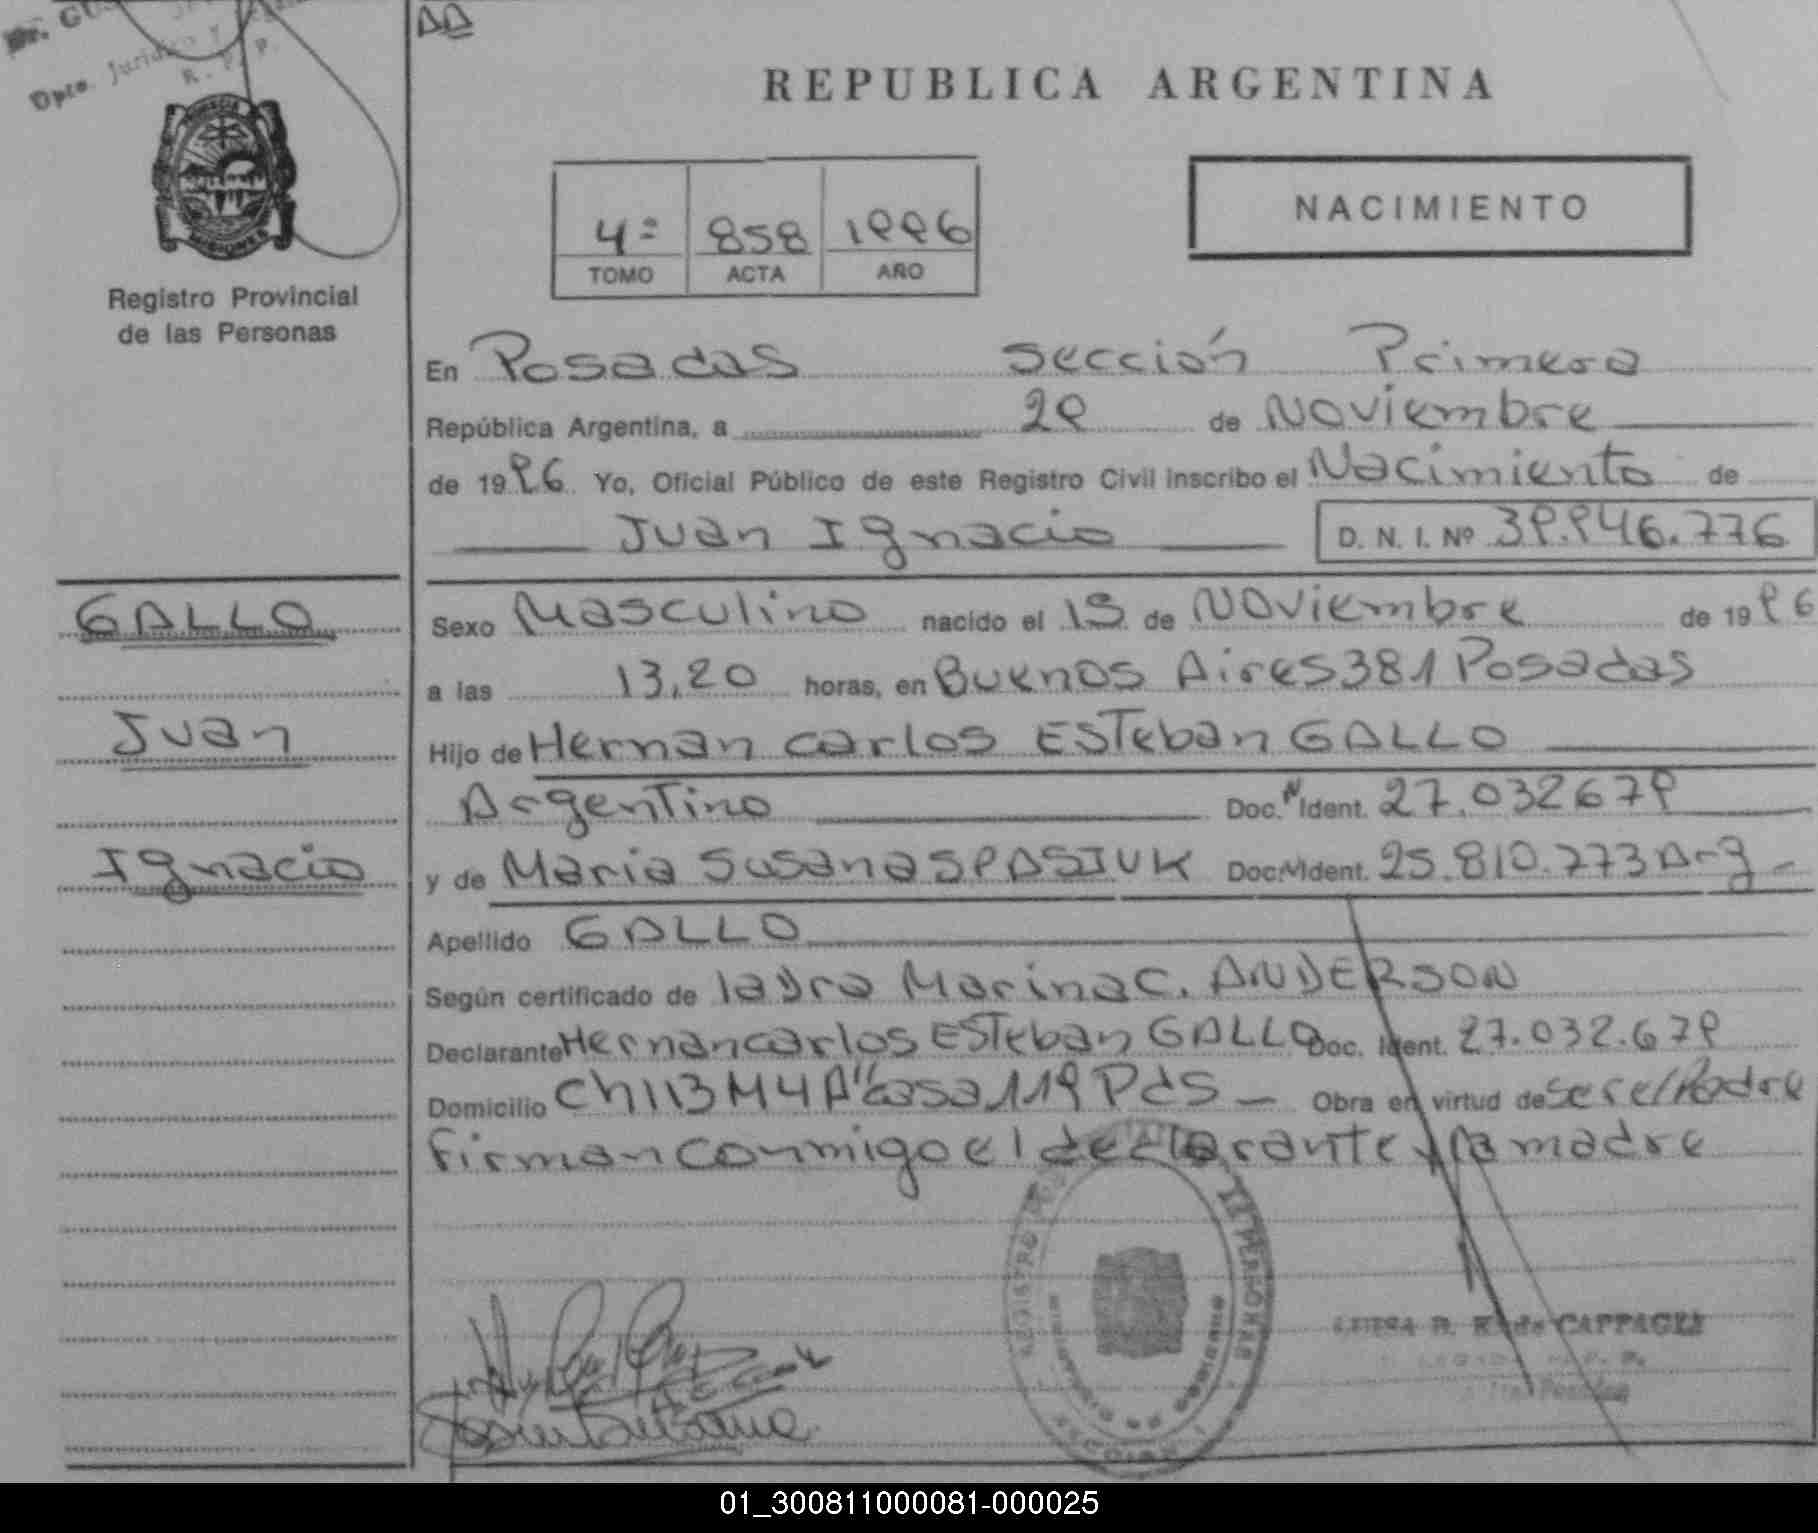 Dpto. Jurídico y
R. P. P.
REPUBLICA ARGENTINA
NACIMIENTO
4º 858 1996
TOMO ACTA AÑO
MISIONES
Registro Provincial
de las Personas
En Posadas Sección Primera
República Argentina, a 29 de Noviembre
de 1996 Yo, Oficial Público de este Registro Civil inscribo el Nacimiento de
Juan Ignacio D. N. I. Nº 39.946.776
GALLO
Juan
Ignacio
Sexo Masculino nacido el 15 de Noviembre de 1996
a las 13,20 horas, en Buenos Aires 381 Posadas
Hijo de Hernan Carlos Esteban GALLO
Argentino Doc. N Ident. 27.032679
y de Maria Susana SPASIUK Doc. N Ident. 25.810.773 Arg -
Apellido GALLO
Según certificado de la Dra Marina C. ANDERSON
Declarante Hernan Carlos Esteban GALLO Doc. Ident. 27.032.679
Domicilio Ch 113 M 4 "A" Casa 119 Pdas - Obra en virtud de ser el Padre
Firman conmigo el declarante y la madre
de CAPPAGLI
Posadas
01_300811000081-000025